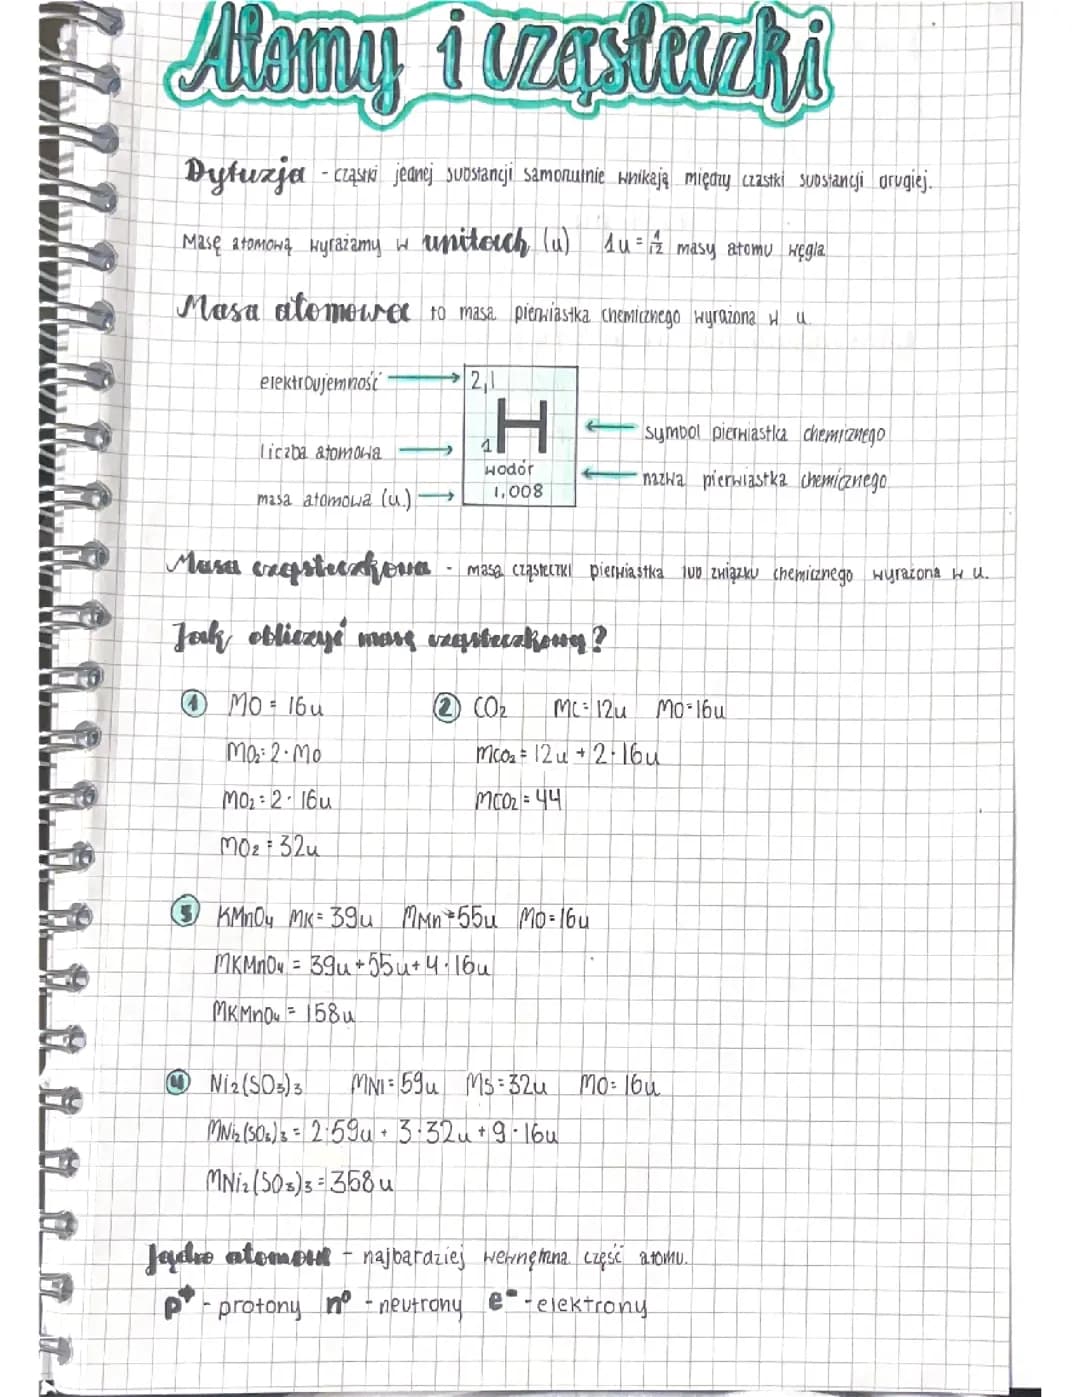 Atomy i cząsteczki
Dyfuzja - cząstki jednej substancji samorzutnie wnikają między cząstki substancji drugiej.
Masę atomową wyrażamy w unitach (u) 1u = 1/12 masy atomu węgla
Masa atomowa to masa pierwiastka chemicznego wyrażona w u.
elektroujemność 2,1
H
symbol pierwiastka chemicznego
liczba atomowa 1
wodór
nazwa pierwiastka chemicznego
masa atomowa (u) 1,008
Masa cząsteczkowa - masa cząsteczki pierwiastka lub związku chemicznego wyrażona w u.
Jak obliczyć masę cząsteczkową?
1 MO = 16u
MO₂ = 2 · MO
MO₂ = 2 · 16u
MO₂ = 32u
2 CO₂ MC = 12u MO = 16u
MCO₂ = 12u + 2 · 16u
MCO₂ = 44
3 KMnO₄ MK = 39u MMn = 55u MO = 16u
MKMnO₄ = 39u + 55u + 4 · 16u
MKMnO₄ = 158u
4 Ni₂(SO₃)₃ MNi = 59u MS = 32u MO = 16u
MNi₂(SO₃)₃ = 2 · 59u + 3 · 32u + 9 · 16u
MNi₂(SO₃)₃ = 358u
Jądro atomowe - najbardziej wewnętrzna część atomu.
p⁺ - protony n⁰ - neutrony e⁻ - elektrony